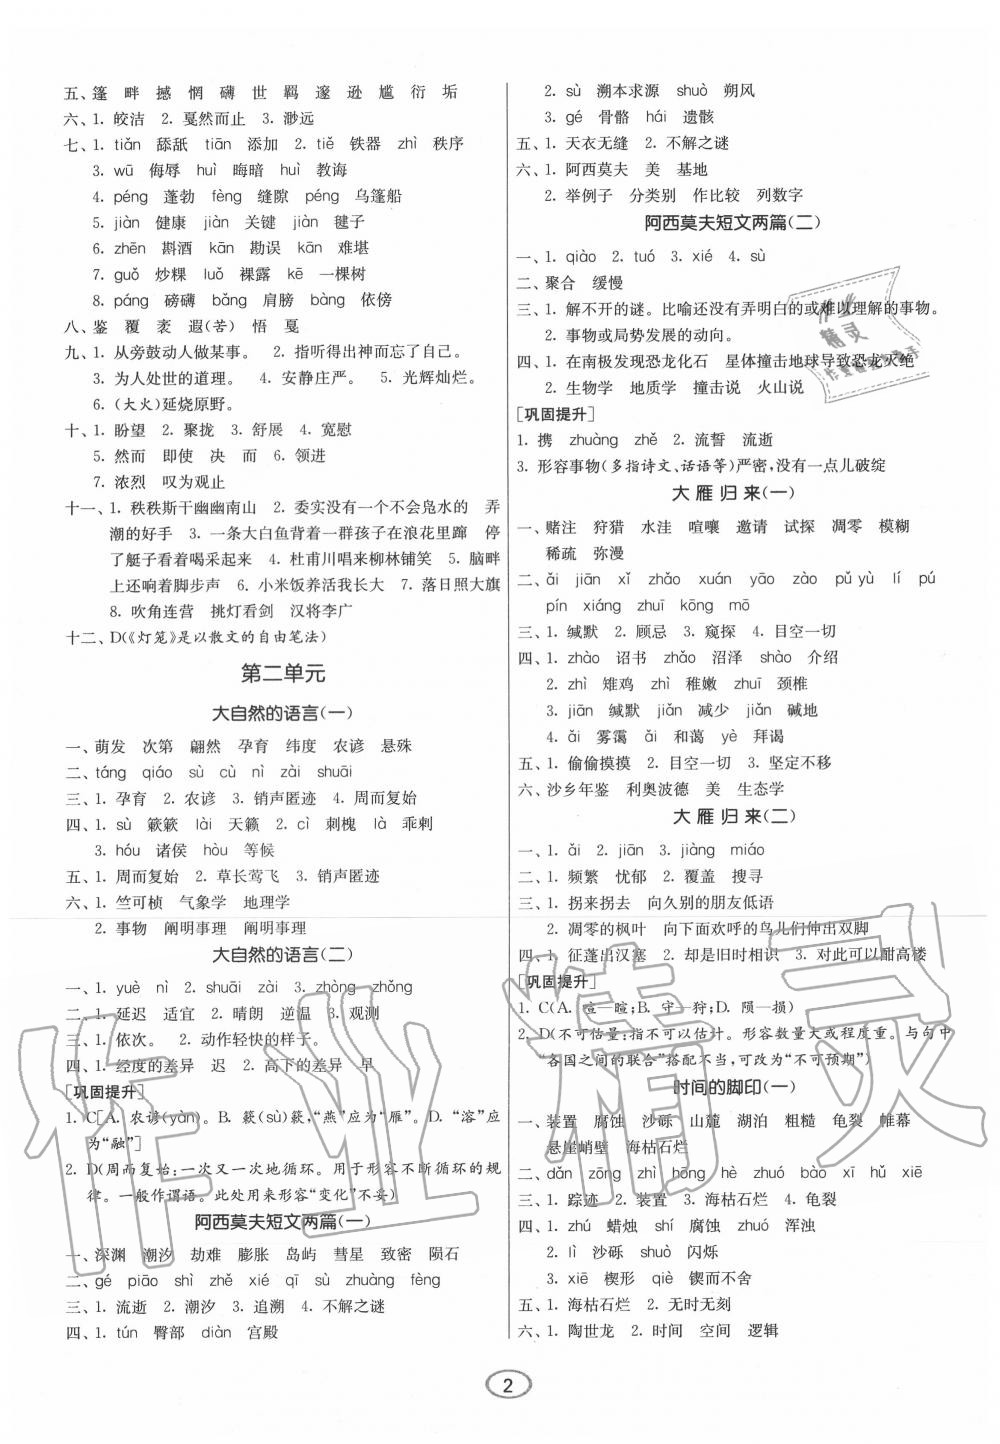 五、篷 畔 撼 惘 礴 世 羁 邃 逊 尴 衍 垢
六、1. 皎洁 2. 戛然而止 3. 渺远
七、1. tiǎn 舔舐 tiān 添加 2. tiě 铁器 zhì 秩序
3. wū 侮辱 huì 晦暗 huì 教诲
4. péng 蓬勃 fèng 缝隙 péng 乌篷船
5. jiàn 健康 jiàn 关键 jiàn 毽子
6. zhēn 斟酒 kān 勘误 kān 难堪
7. guǒ 炒粿 luǒ 裸露 kē 一棵树
8. páng 磅礴 bǎng 肩膀 bàng 依傍
八、鉴 覆 袤 遐(苦) 悟 戛
九、1. 从旁鼓动人做某事。 2. 指听得出神而忘了自己。
3. 为人处世的道理。 4. 安静庄严。 5. 光辉灿烂。
6. (大火)延烧原野。
十、1. 盼望 2. 聚拢 3. 舒展 4. 宽慰
5. 然而 即使 决 而 6. 领进
7. 浓烈 叹为观止
十一、1. 秩秩斯干幽幽南山 2. 委实没有一个不会凫水的 弄
潮的好手 3. 一条大白鱼背着一群孩子在浪花里蹿 停
了艇子看着喝采起来 4. 杜甫川唱来柳林铺笑 5. 脑畔
上还响着脚步声 6. 小米饭养活我长大 7. 落日照大旗
8. 吹角连营 挑灯看剑 汉将李广
十二、D(《灯笼》是以散文的自由笔法)
第二单元
大自然的语言(一)
一、萌发 次第 翩然 孕育 纬度 农谚 悬殊
二、táng qiáo sù cù nì zài shuāi
三、1. 孕育 2. 农谚 3. 销声匿迹 4. 周而复始
四、1. sù 簌簌 lài 天籁 2. cì 刺槐 là 乖剌
3. hóu 诸侯 hòu 等候
五、1. 周而复始 2. 草长莺飞 3. 销声匿迹
六、1. 竺可桢 气象学 地理学
2. 事物 阐明事理 阐明事理
大自然的语言(二)
一、1. yuè nì 2. shuāi zài 3. zhòng zhǒng
二、1. 延迟 适宜 2. 晴朗 逆温 3. 观测
三、1. 依次。 2. 动作轻快的样子。
四、1. 经度的差异 迟 2. 高下的差异 早
[巩固提升]
1. C[A. 农谚(yàn)。B. 簌(sù)簌,“燕”应为“雁”。D. “溶”应
为“融”]
2. D(周而复始:一次又一次地循环。用于形容不断循环的规
律。一般作谓语。此处用来形容“变化”不妥)
阿西莫夫短文两篇(一)
一、深渊 潮汐 劫难 膨胀 岛屿 彗星 致密 陨石
二、gé piāo shì zhě xié qī sù zhuàng fèng
三、1. 流逝 2. 潮汐 3. 追溯 4. 不解之谜
四、1. tún 臀部 diàn 宫殿
2. sù 溯本求源 shuò 朔风
3. gé 骨骼 hái 遗骸
五、1. 天衣无缝 2. 不解之谜
六、1. 阿西莫夫 美 基地
2. 举例子 分类别 作比较 列数字
阿西莫夫短文两篇(二)
一、1. qiào 2. tuó 3. xié 4. sù
二、聚合 缓慢
三、1. 解不开的谜。比喻还没有弄明白的或难以理解的事物。
2. 事物或局势发展的动向。
四、1. 在南极发现恐龙化石 星体撞击地球导致恐龙灭绝
2. 生物学 地质学 撞击说 火山说
[巩固提升]
1. 携 zhuàng zhě 2. 流誓 流逝
3. 形容事物(多指诗文、话语等)严密,没有一点儿破绽
大雁归来(一)
一、赌注 狩猎 水洼 喧嚷 邀请 试探 凋零 模糊
稀疏 弥漫
二、ǎi jiān xǐ zhǎo xuán yāo zào pǔ yù lí pú
pín xiáng zhuī kōng mō
三、1. 缄默 2. 顾忌 3. 窥探 4. 目空一切
四、1. zhào 诏书 zhǎo 沼泽 shào 介绍
2. zhì 雉鸡 zhì 稚嫩 zhuī 颈椎
3. jiān 缄默 jiǎn 减少 jiǎn 碱地
4. ǎi 雾霭 ǎi 和蔼 yè 拜谒
五、1. 偷偷摸摸 2. 目空一切 3. 坚定不移
六、沙乡年鉴 利奥波德 美 生态学
大雁归来(二)
一、1. ǎi 2. jiān 3. jiàng miáo
二、1. 频繁 忧郁 2. 覆盖 搜寻
三、1. 拐来拐去 向久别的朋友低语
2. 凋零的枫叶 向下面欢呼的鸟儿们伸出双脚
四、1. 征蓬出汉塞 2. 却是旧时相识 3. 对此可以酣高楼
[巩固提升]
1. C(A. 喧—暄;B. 守—狩;D. 陨—损)
2. D(不可估量:指不可以估计。形容数量大或程度重。与句中
“各国之间的联合”搭配不当,可改为“不可预期”)
时间的脚印(一)
一、装置 腐蚀 沙砾 山麓 湖泊 粗糙 龟裂 帷幕
悬崖峭壁 海枯石烂
二、dǎn zōng zhì hōng hè zhuó bào xī hǔ xiē
三、1. 踪迹 2. 装置 3. 海枯石烂 4. 龟裂
四、1. zhú 蜡烛 shí 腐蚀 zhuó 浑浊
2. lì 沙砾 shuò 闪烁
3. xiē 楔形 qiè 锲而不舍
五、1. 海枯石烂 2. 无时无刻
六、1. 陶世龙 2. 时间 空间 逻辑
2
作业精灵
作业精灵
作业检查小助手